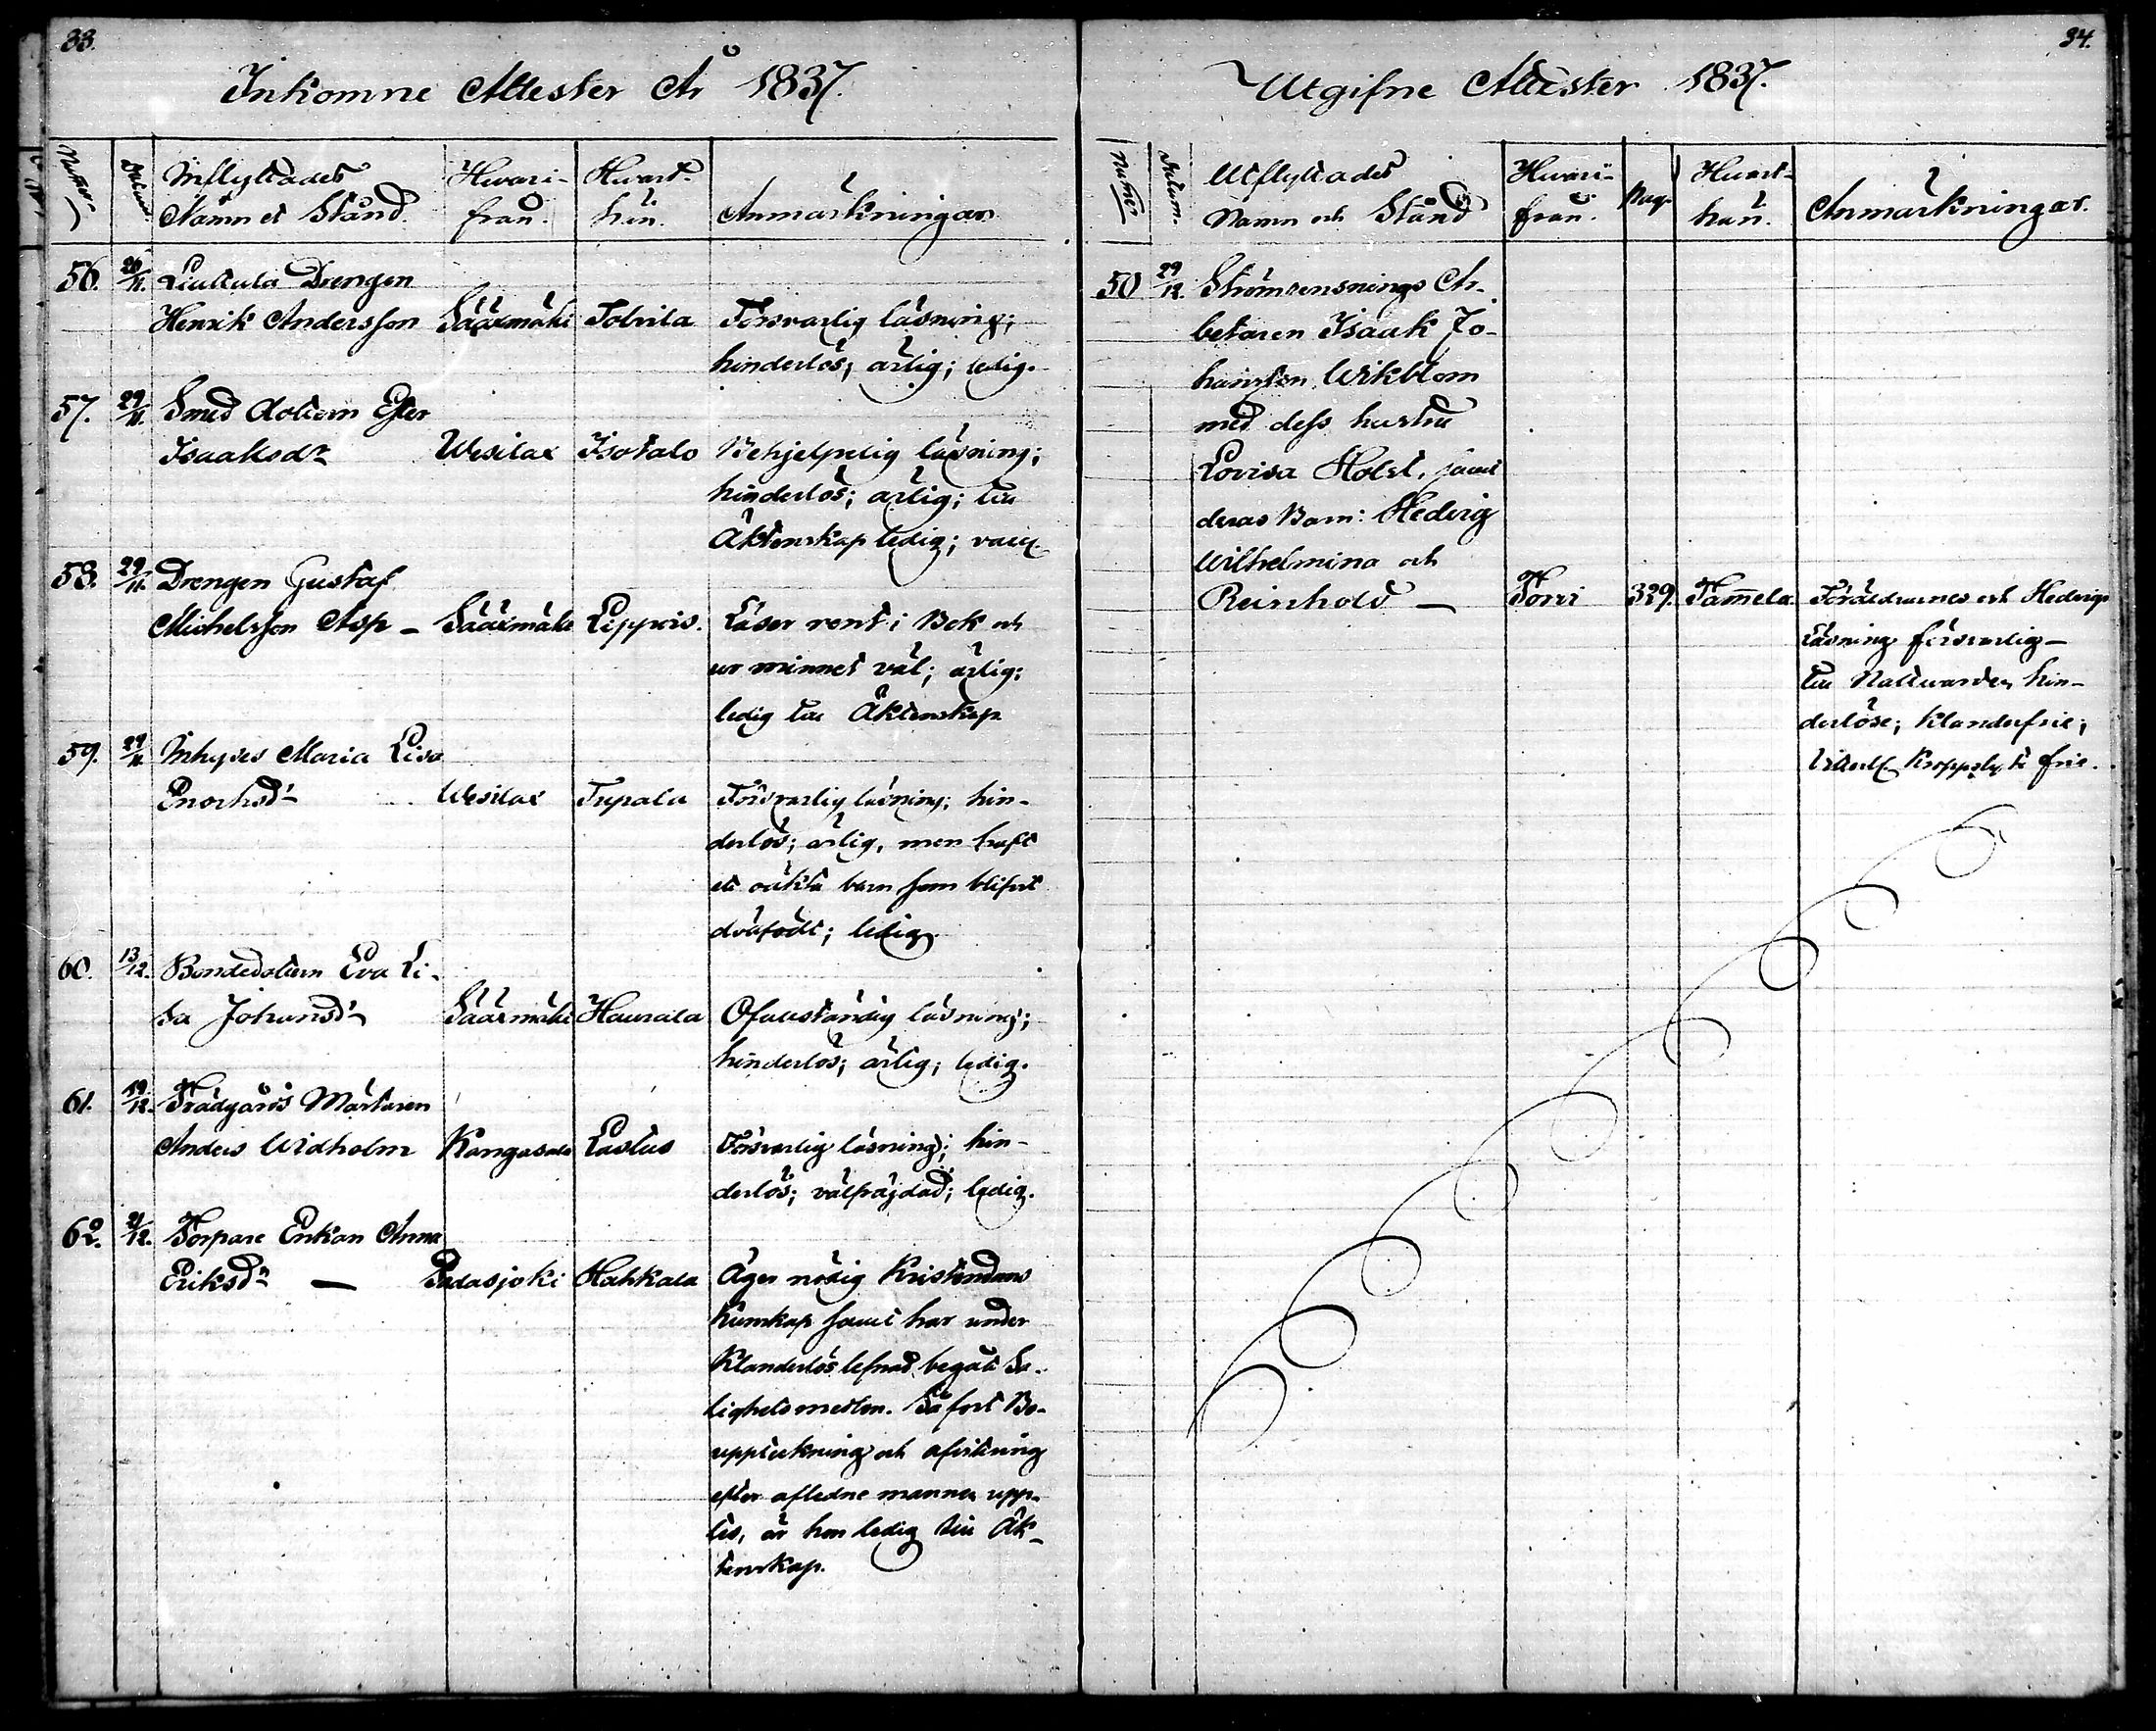 33.
Inkomne Attester År 1837.
Numer
Datum
Inflyttades
Namn et Stånd.
Hvari-
från.
Hvart-
hän.
Anmärkningar
56. 26/11. Liuttula Drengen
Henrik Andersson Sääxmäki Tolvila Försvarlig läsning;
hinderlös; ärlig; ledig.
57. 29/11. Smed dottern Ester
Isaaksdr Wesilax Isotalo Behjelpelig läsning;
hinderlös; ärlig; till
Äktenskap ledig; vacc.
58. 29/11. Drengen Gustaf
Michelsson Asp - Sääxmäki Lippois. Läser rent i Bok och
ur minnet väl; ärlig;
ledig till Äktenskap
59. 29/11 Inhyses Maria Lisa
Enochsdr Wesilax Tupala Försvarlig läsning; hin-
derlös; ärlig, men haft
ett oäkta barn som blifvit
dödfödt; ledig
60. 13/12. Bondedottern Eva Li-
sa Johansdr Sääxmäki Haurala Ofullständig läsning;
hinderlös; ärlig; ledig.
61. 19/12. Trädgårds Mästaren
Anders Widholm Kangasala Lastus Försvarlig läsning; hin-
derlös; välfräjdad; ledig.
62. 21/12. Torpare Enkan Anna
Eriksdr - Padasjoki Hahkala Äger nödig Kristendoms
Kunskap samt har under
Klanderlös lefnad begått Sa-
lighetsmedlen. Så fort Bo-
uppteckning och afvittring
efter aflidne mannen upp-
tes, är hon ledig till Äk-
tenskap.
34.
Utgifne Attester 1837.
Numer
Datum.
Utflyttades
Namn och Stånd
Hvari-
från.
Pag.
Hvart-
hän.
Anmärkningar.
50 29/12. Strömrensnings Ar-
betaren Isaak Jo-
hansson Wikblom
med dess hustru
Lovisa Holst, samt
deras Barn: Hedvig
Wilhelmina och
Reinhold - Torri 329. Tammela Föräldrarnes och Hedvigs
Läsning försvarlig -
till Nattvarden hin-
derlöse; Klanderfrie;
frie.